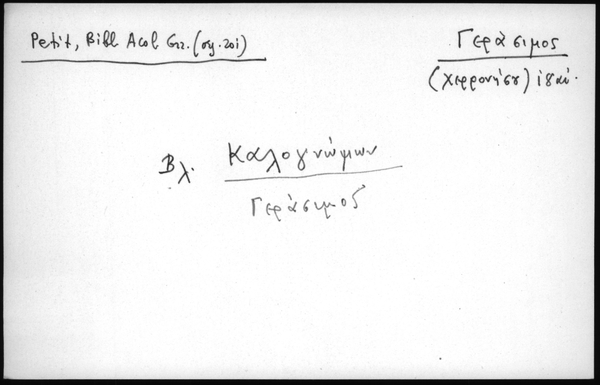 Petit, Bibl Acol Gr. (σχ. 201)
Γεράσιμος
(Χερρονήσου) ιδαί.
Βλ. Καλογνώμων
Γεράσιμος